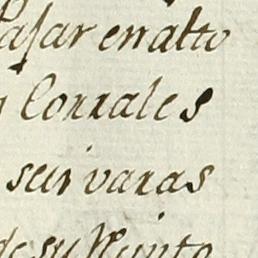 Pasar en alto
y Corrales
seis varas
de su Quinto